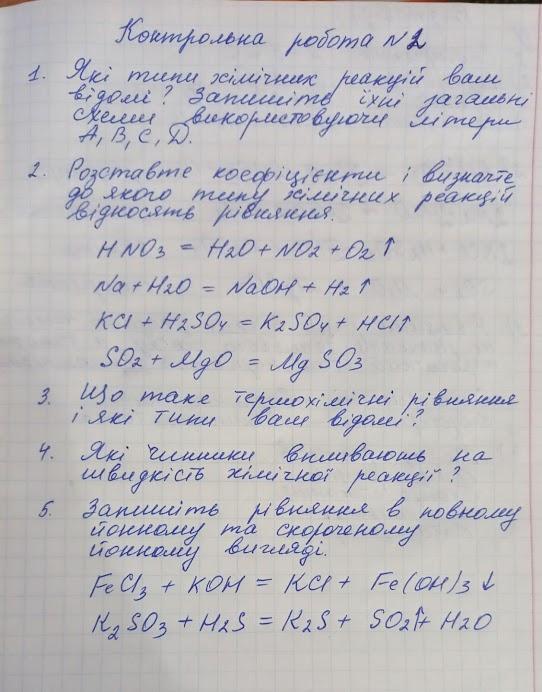 Контрольна робота №2
1. Які типи хімічних реакцій вам
відомі? Запишіть їхні загальні
схеми використовуючи літери
A, B, C, D.
2. Розставте коефіцієнти і визначте
до якого типу хімічних реакцій
відносять рівняння.
HNO3 = H2O + NO2 + O2↑
Na + H2O = NaOH + H2↑
KCl + H2SO4 = K2SO4 + HCl↑
SO2 + MgO = MgSO3
3. Що таке термохімічні рівняння
і які типи вам відомі?
4. Які чинники впливають на
швидкість хімічної реакції?
5. Запишіть рівняння в повному
йонному та скороченому
йонному вигляді.
FeCl3 + KOH = KCl + Fe(OH)3↓
K2SO3 + H2S = K2S + SO2↑ + H2O